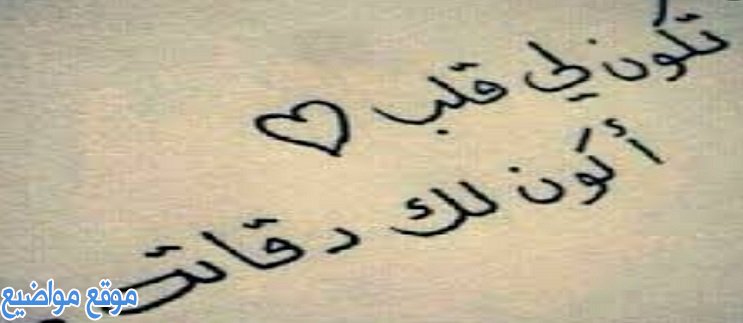 تكون لي قلب
أكون لك دقاته
موقع مواضيع